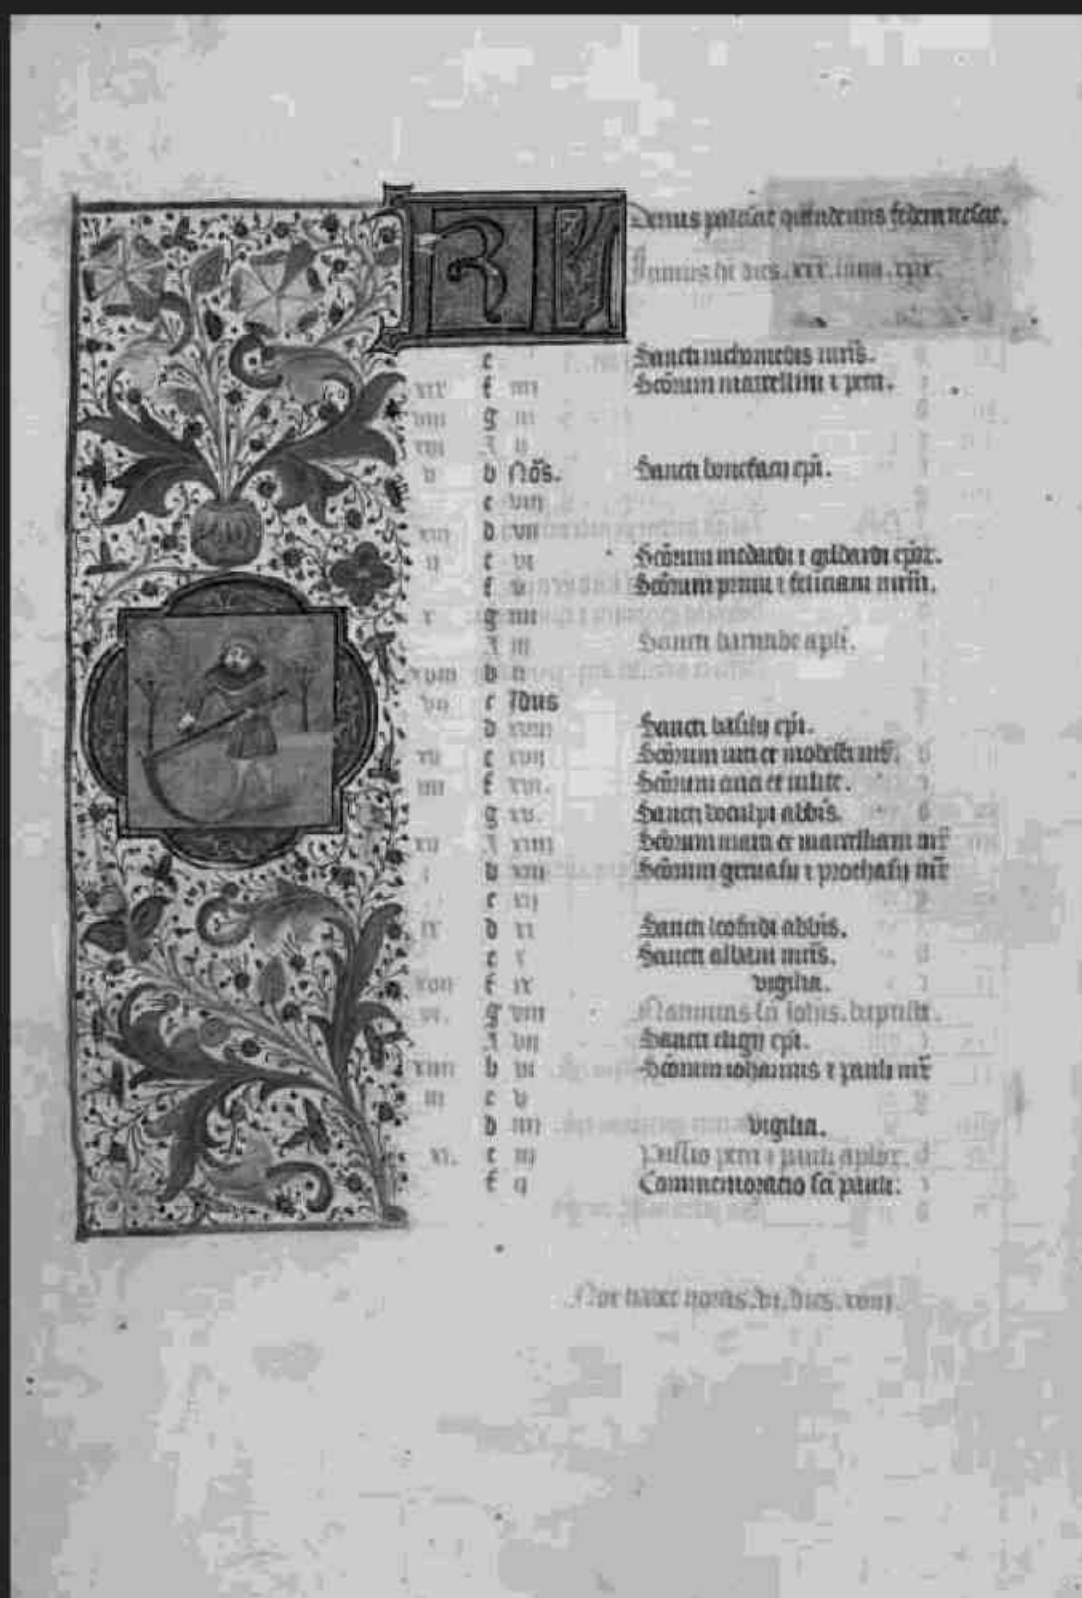 KL
Denus pallescit quindenus federa nescit.
Junius ht dies. xxx. luna. xxix.
e Sancti nichomedis mr̄is.
xix f iiii Scōrum marcellini ⁊ petri.
viii g iii
xvi A ii
v b Nōs. Sancti bonefacij ep̄i.
c viii
xiii d vii
ii e vi Scōrum medardi ⁊ gildardi ep̄or.
f v Scōrum primi ⁊ feliciani mr̄m.
x g iiii
A iii Sancti barnabe apl̄i.
xviii b ii
vii c Idus
d xviii Sancti basilij ep̄i.
xv e xvii Scōrum viti et modesti mr̄.
iiii f xvi. Scōrum cirici et iulite.
g xv. Sancti abb̄is.
xii A xiiii Scōrum marci et marcelliani mr̄
i b xiii Scōrum geruasij ⁊ prothasij mr̄
c xii
ix d xi Sancti leofridi abb̄is.
e x Sancti albani mr̄is.
xvii f ix vigilia.
vi. g viii Natiuitas sc̄i ioh̄is. baptiste.
A vii Sancti eligij ep̄i.
xiiii b vi Scōrum iohannis ⁊ pauli mr̄
iii c v
d iiii vigilia.
xi. e iii Passio petri ⁊ pauli aplōr.
f ii Commemoratio sc̄i pauli.
Nox habet horas. vi. dies. xviii.